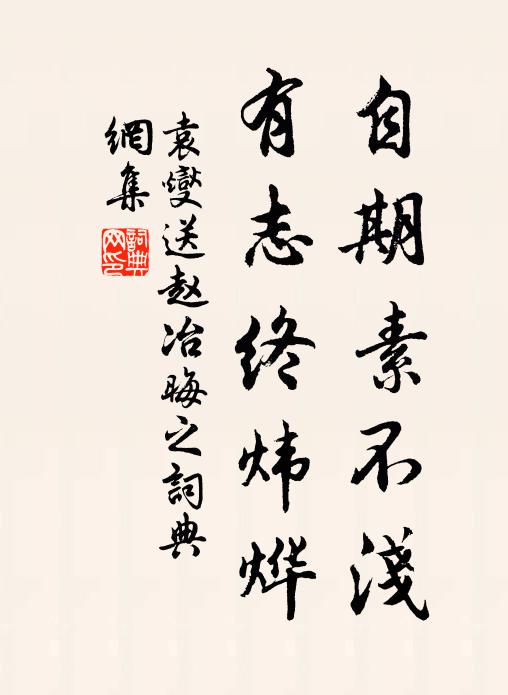 自期素不淺
有志终炜烨
袁燮送赵冶晦之詞典
網集
詞典
网印